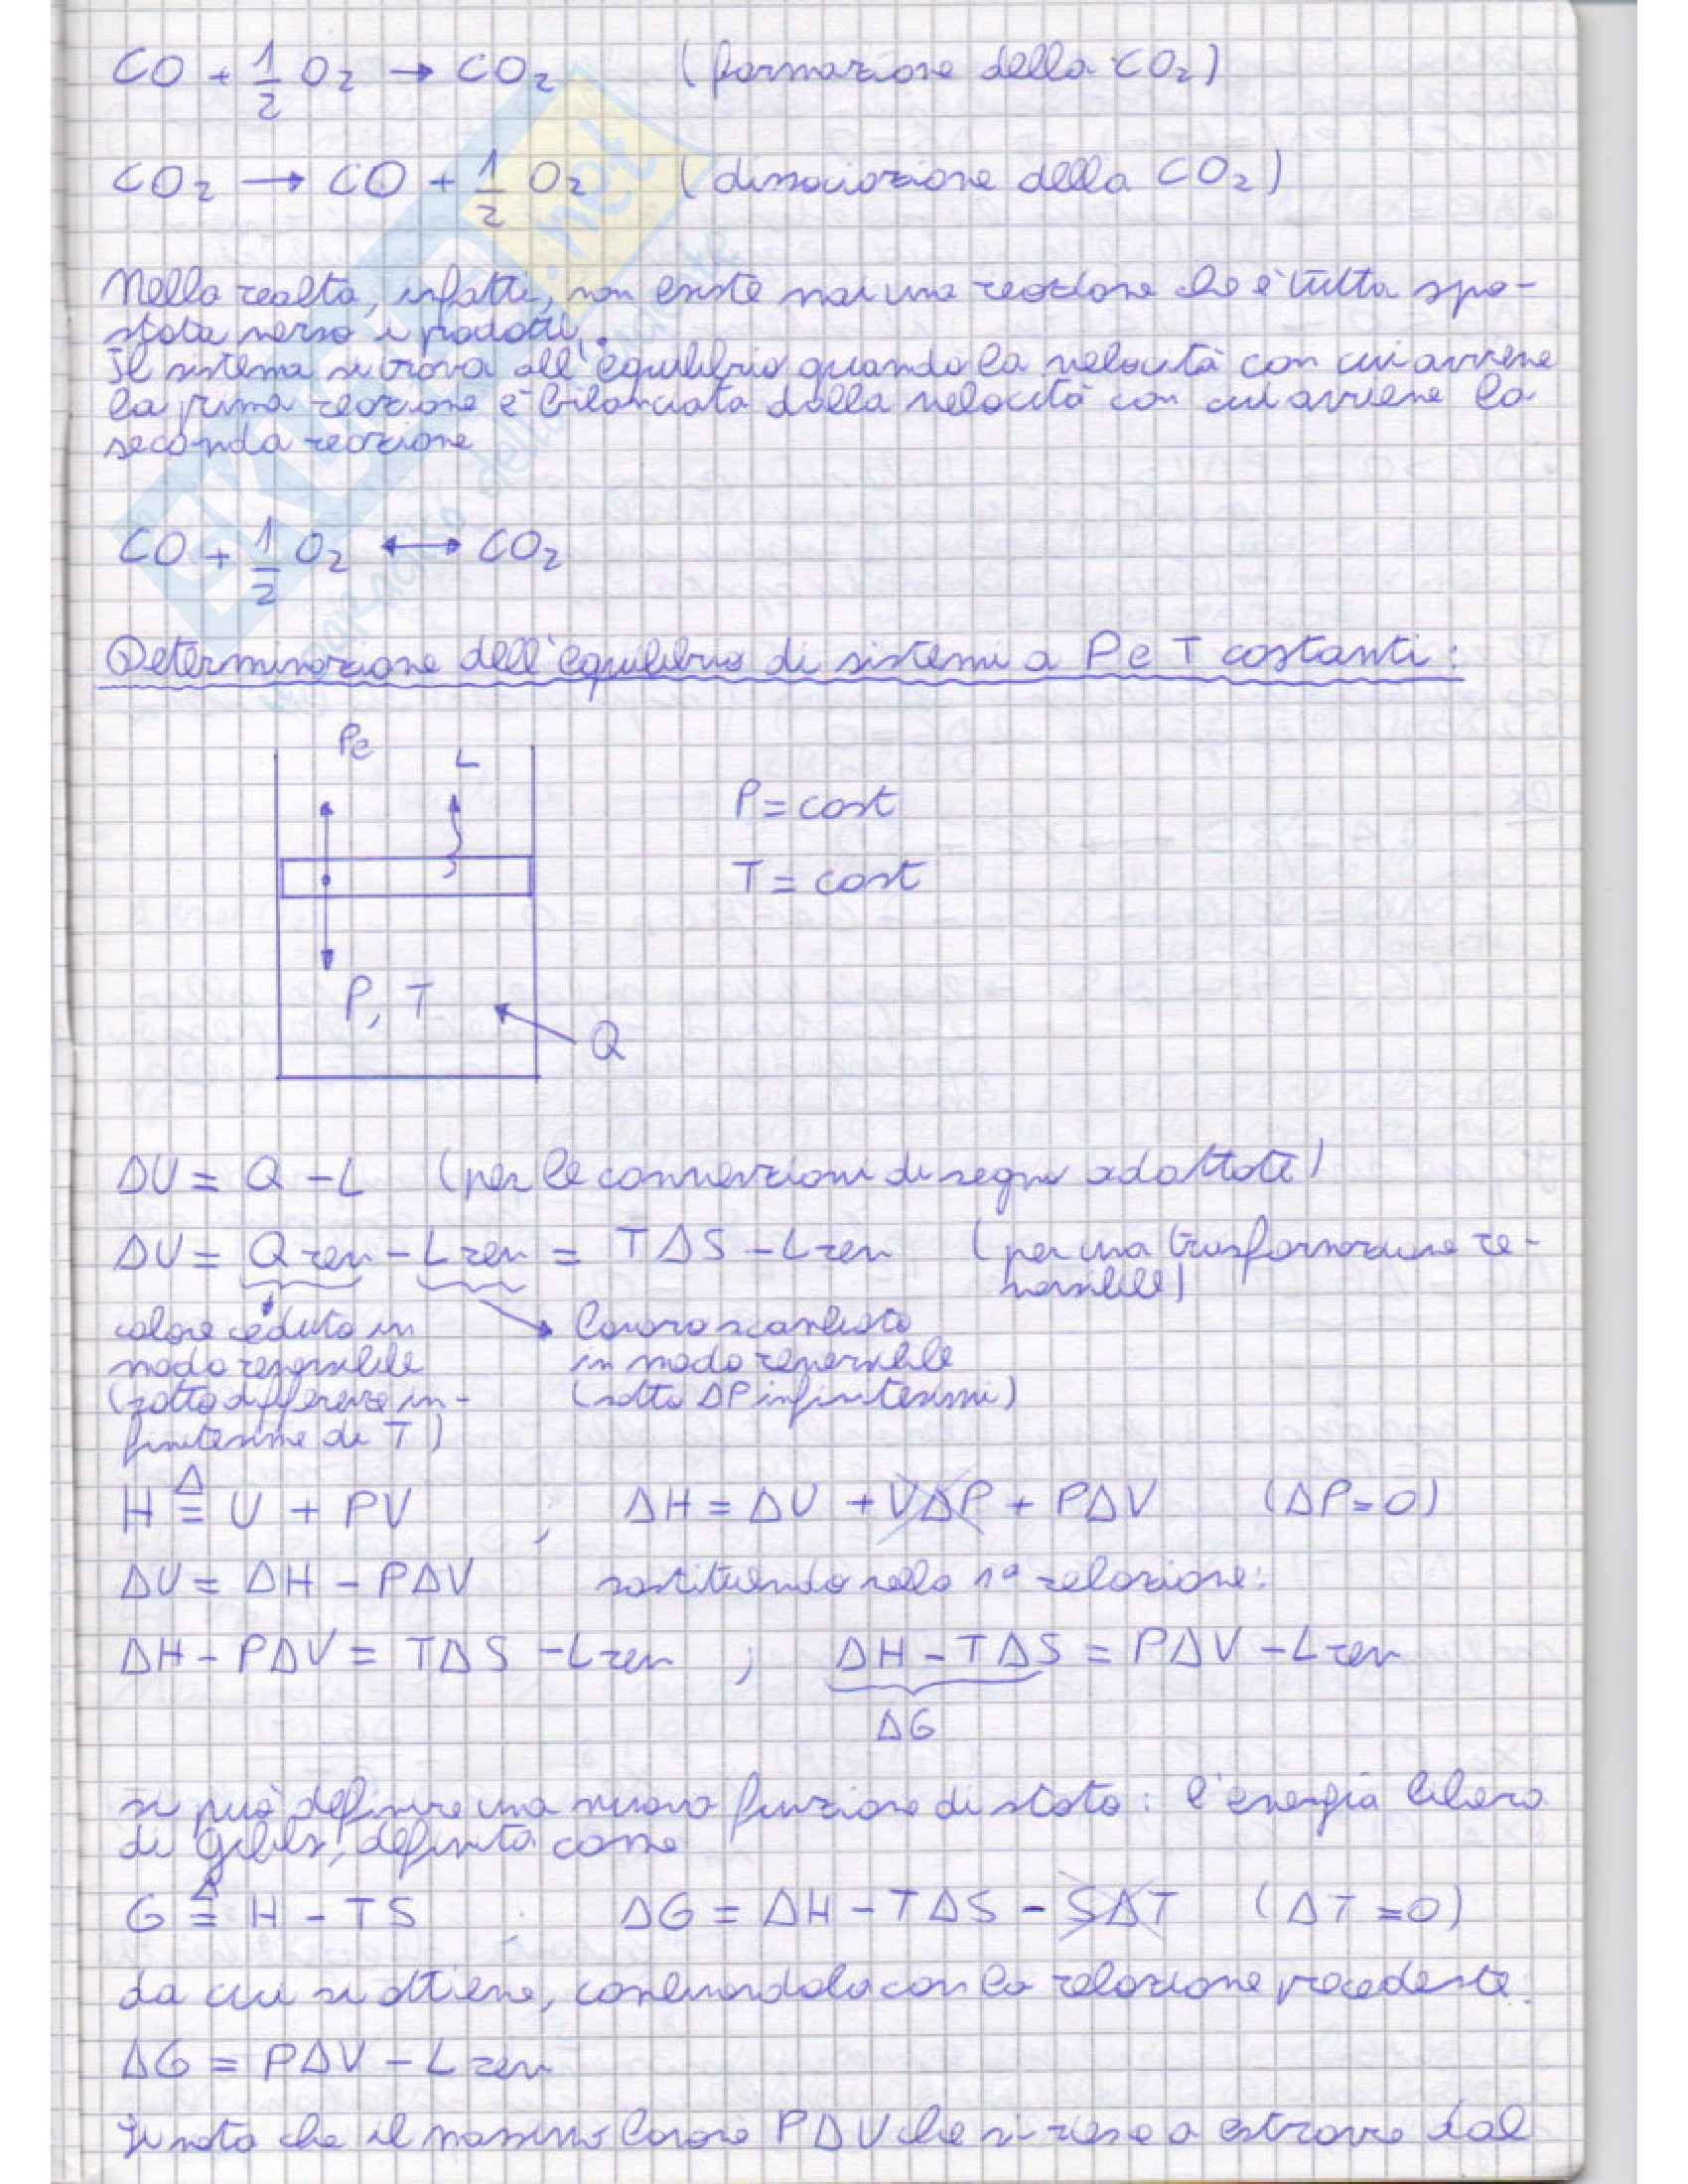 CO + 1/2 O2 → CO2 (formazione della CO2)
CO2 → CO + 1/2 O2 (dissociazione della CO2)
Nella realtà, infatti, non esiste mai una reazione che è tutta spo-
stata verso i prodotti.
Il sistema si trova all'equilibrio quando la velocità con cui avviene
la prima reazione è bilanciata dalla velocità con cui avviene la
seconda reazione
CO + 1/2 O2 ↔ CO2
Determinazione dell'equilibrio di sistemi a P e T costanti:
Pe
L
P = cost
T = cost
P, T
Q
ΔU = Q - L (per le convenzioni di segno adottate)
ΔU = Qrev - Lrev = TΔS - Lrev (per una trasformazione re-
versibile)
calore ceduto in
modo reversibile
(sotto differenze in-
finitesime di T)
lavoro scambiato
in modo reversibile
(sotto ΔP infinitesimi)
H ≜ U + PV , ΔH = ΔU + VΔP + PΔV (ΔP = 0)
ΔU = ΔH - PΔV sostituendo nella 1ª relazione:
ΔH - PΔV = TΔS - Lrev ; ΔH - TΔS = PΔV - Lrev
ΔG
si può definire una nuova funzione di stato: l'energia libera
di Gibbs, definita come
G ≜ H - TS , ΔG = ΔH - TΔS - SΔT (ΔT = 0)
da cui si ottiene, combinandola con la relazione precedente:
ΔG = PΔV - Lrev
Si nota che il massimo lavoro PΔV che si riesce a estrarre dal
EKUERE.net